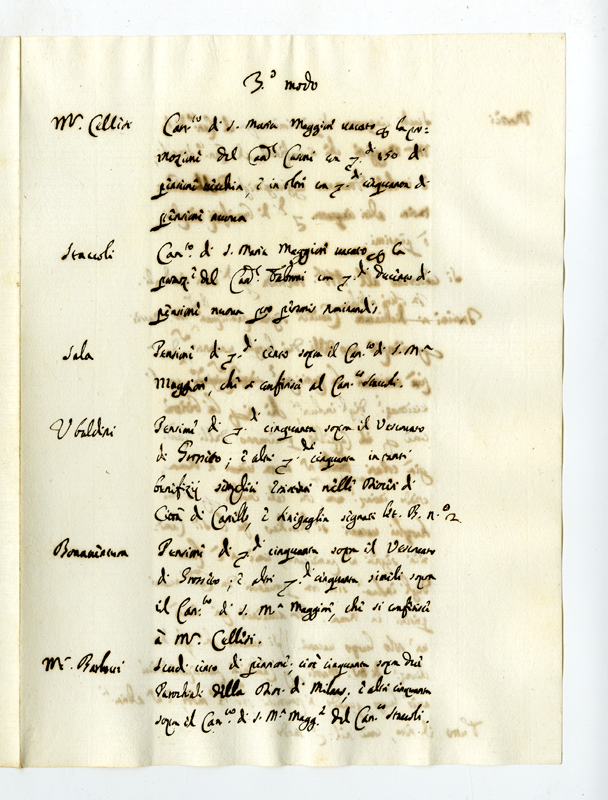 3.º modo
Mr. Cellesi Can.to di S. Maria Maggiore vacato p la pro=
mozione del Card.l Casoni con di 150 di
pensione vecchia, e in oltre con di cinquanta di
pensione nuova
Staccoli Can.to di S. Maria Maggiore vacato p la
promoz.e del Card.l Fabroni con di ducento di
pensione nuova pro personis nominandis
Sala Pensione di di cento sopra il Can.to di S. M.a
Maggiore, che si conferisce al Can.co Staccoli.
Ubaldini Pensione di di cinquanta sopra il Vescovato
di Grosseto; e altri di cinquanta in tanti
benefizij semplici esistenti nelle Diocesi di
Città di Castello, e Sinigaglia segnati let. B. n.º 2.
Bonaventura Pensione di di cinquanta sopra il Vescovato
di Grosseto; e altri di cinquanta simili sopra
il Can.to di S. M.a Maggiore, che si conferisce
à Mr. Cellesi.
Mr. Barbucci Scudi cento di pensione; cioè cinquanta sopra due
Parochiali della Dioc. di Milano, e altri cinquanta
sopra il Can.to di S. M.a Magg.e del Can.co Staccoli.